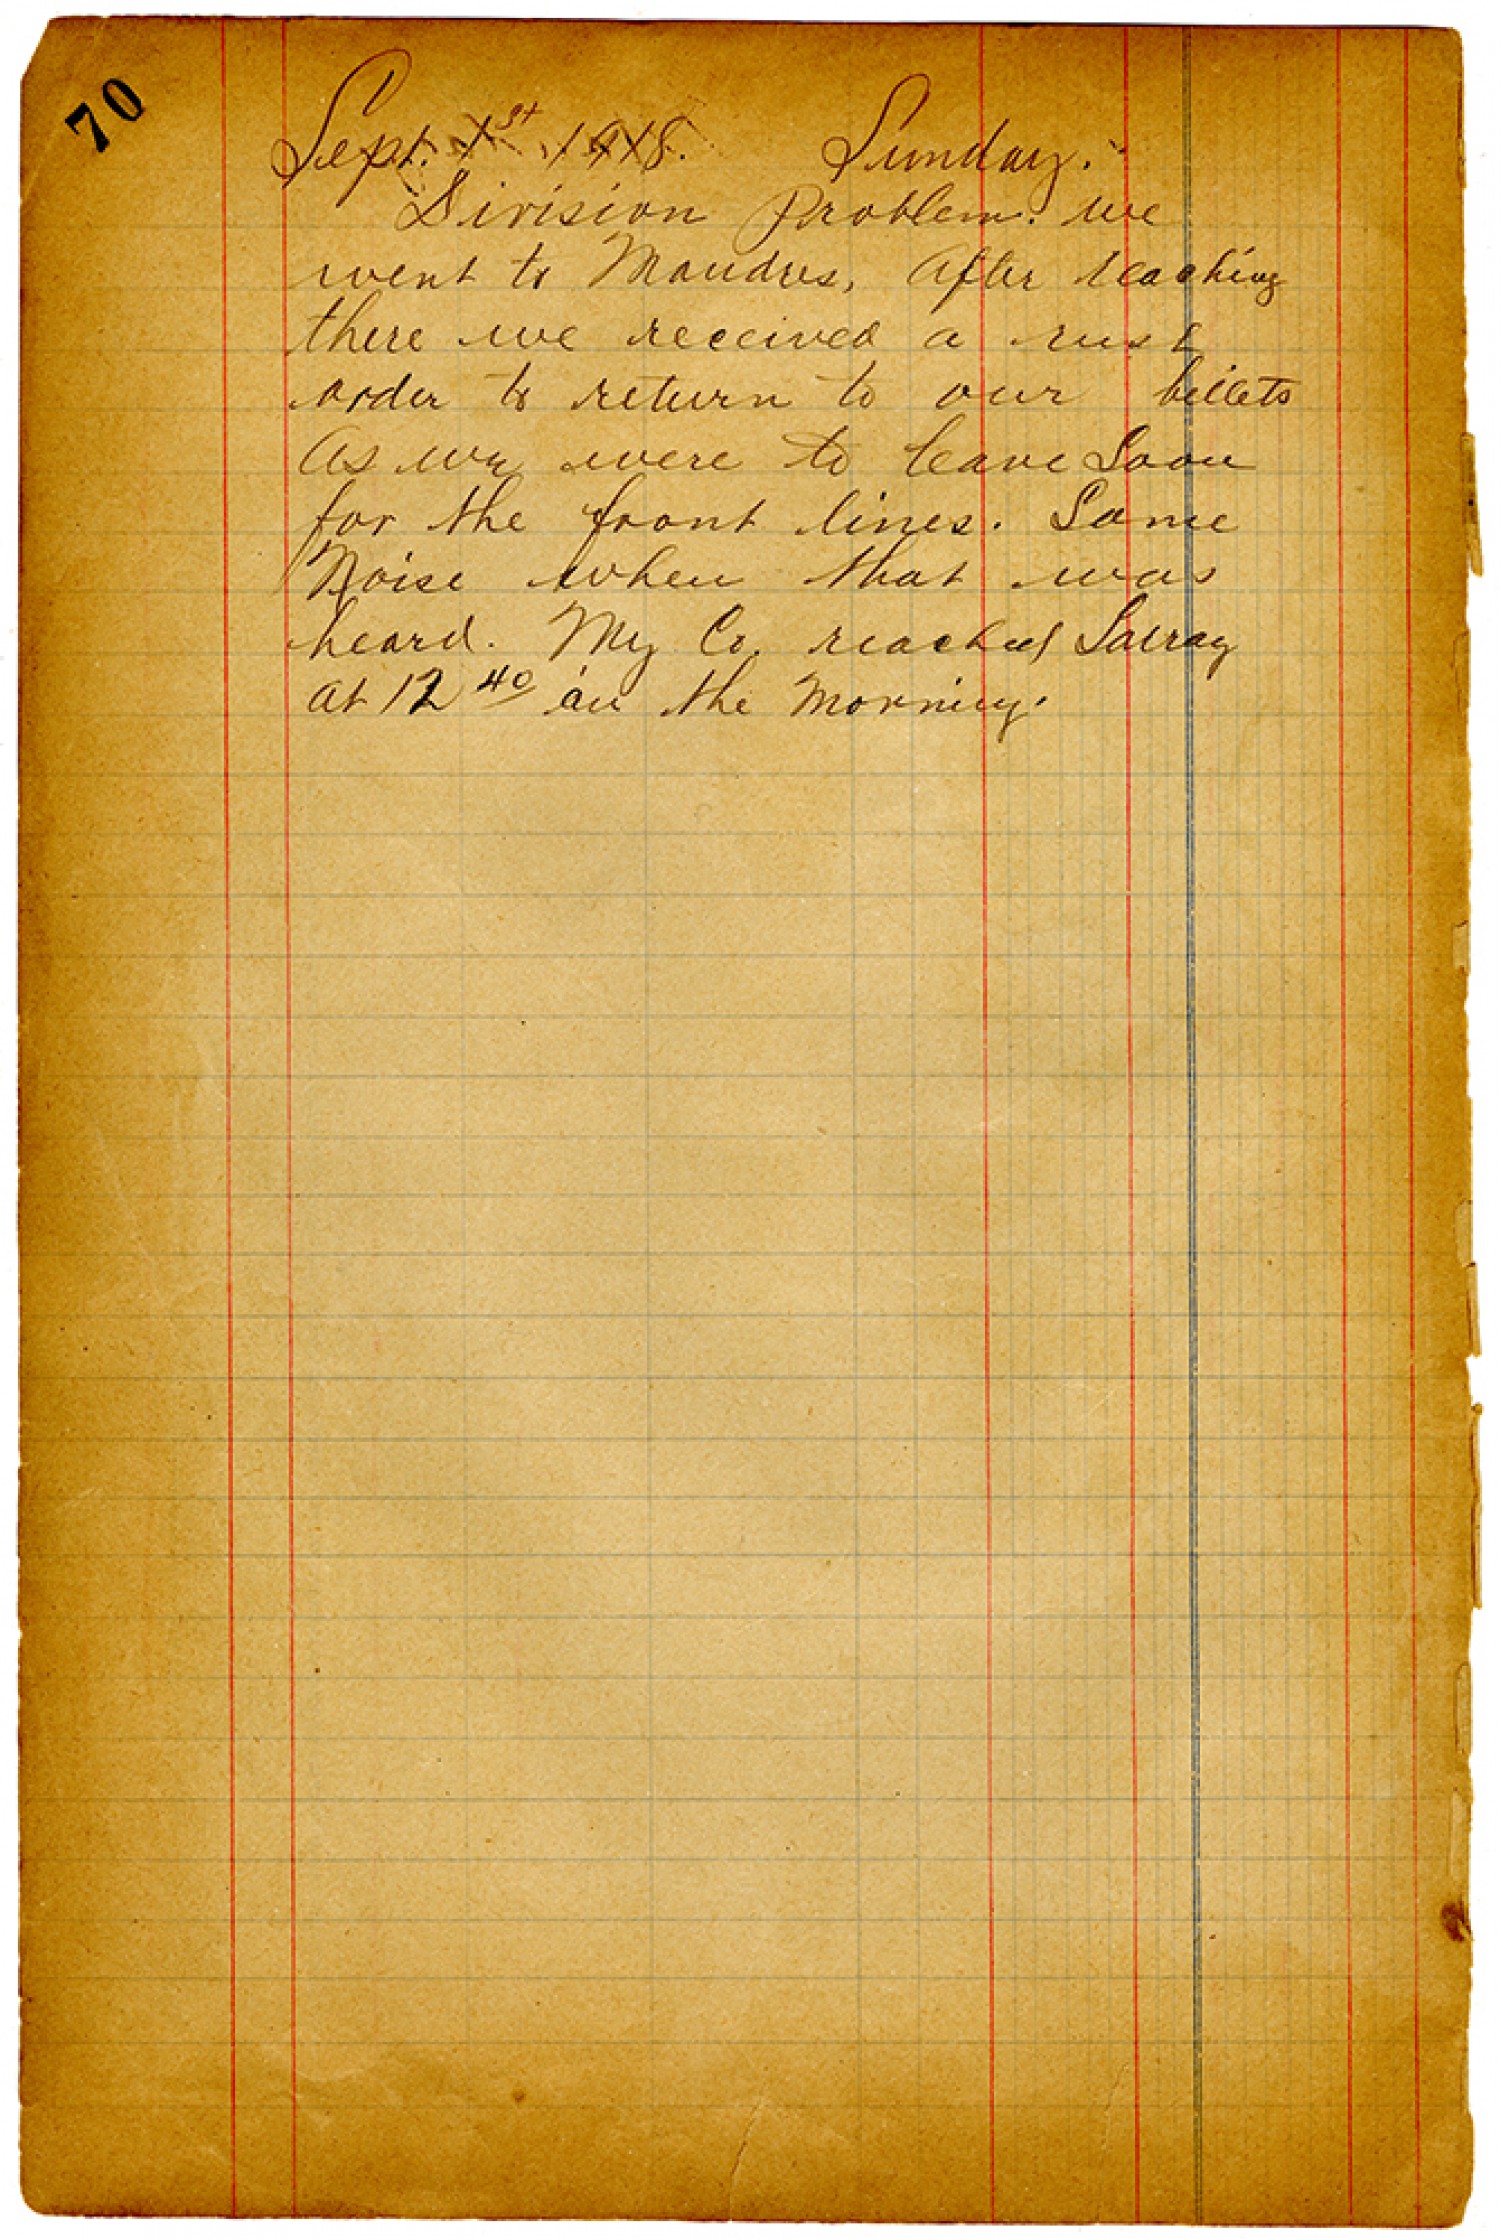 70
Sept. 1st, 1918. Sunday.
Division Problem. We
went to Mandres. After reaching
there we received a rush
order to return to our billets
As we were to leave Soon
for the front lines. Some
Noise when that was
heard. My Co. reached
at 12 40 in the Morning.